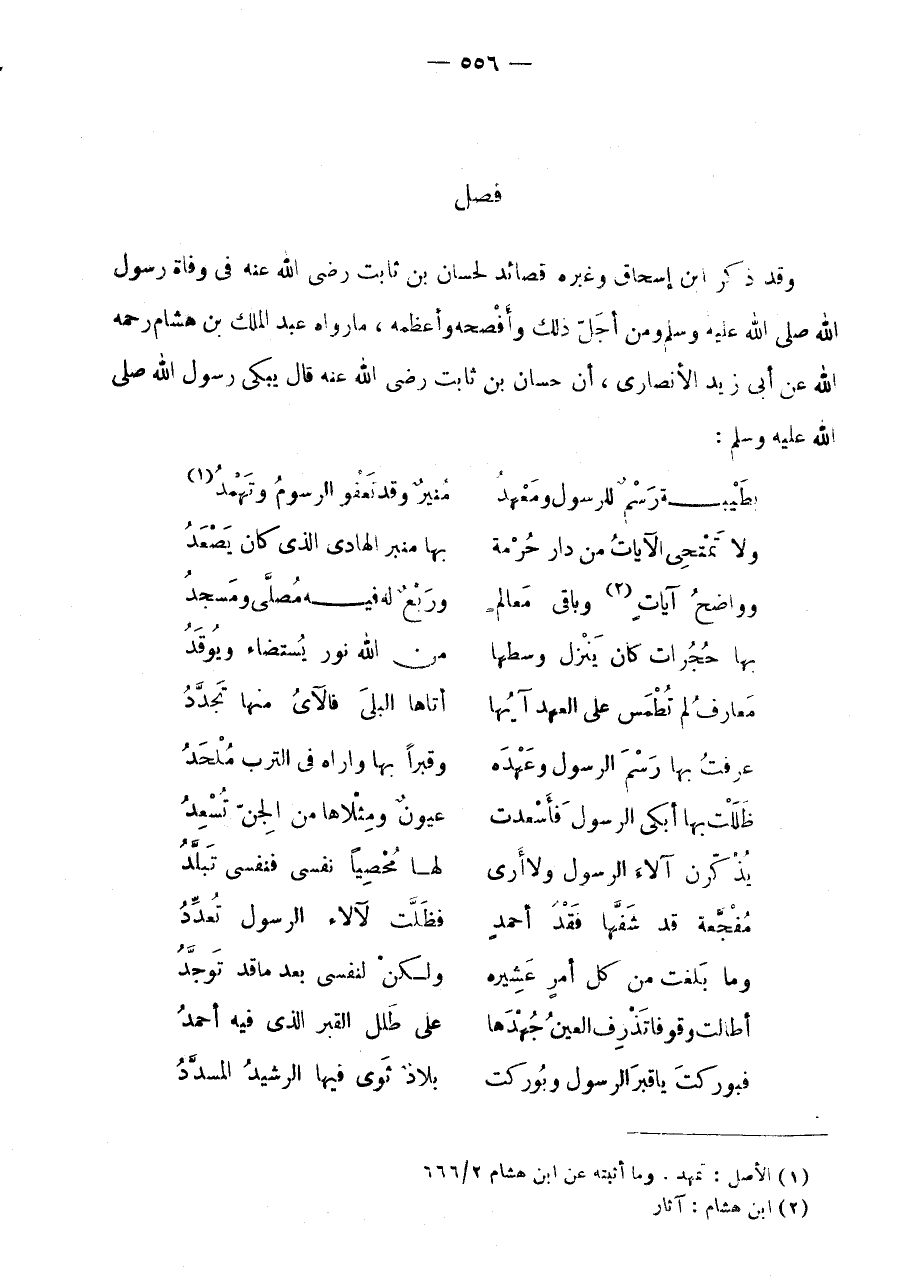 — ٥٥٦ —
فصل
وقد ذكر ابن إسحاق وغيره قصائد لحسان بن ثابت رضى الله عنه فى وفاة رسول
الله صلى الله عليه وسلم ومن أجَلّ ذلك وأَفْصحه وأعظمه ، مارواه عبد الملك بن هشام رحمه
الله عن أبى زيد الأنصارى ، أن حسان بن ثابت رضى الله عنه قال يبكى رسول الله صلى
الله عليه وسلم :
بطَيْبـة رَسْمٌ للرسول ومَعْهدُ مُنيرٌ وقد تَعْفو الرسومُ وتَهْمدُ (١)
ولا تَمْتحِى الآياتُ من دار حُرْمة بها منبر الهادى الذى كان يَصْعَدُ
وواضحُ آياتٍ (٢) وباقى مَعالمٍ ورَبْعٌ له فيـه مُصلَّى ومَسجدُ
بها حُجُرات كان يَنْزل وسطها من الله نور يُستضاء ويُوقَدُ
مَعارفُ لم تُطْمَس على العهد آيُها أتاها البلىَ فالآىُ منها تَجدَّدُ
عرفتُ بها رَسْمَ الرسول وعَهْدَه وقبراً بها واراه فى الترب مُلْحَدُ
ظَلَلْت بها أبكى الرسول فَأَسْعدت عيونٌ ومِثْلاها من الجنّ تُسْعِدُ
يُذَكّرن آلاء الرسول ولا أَرى لهـا مُحْصِياً نفسى فنفسى تَبلَّدُ
مُفْجَّعة قد شَفَّها فَقْدُ أحمدٍ فظَلَّت لآلاء الرسول تُعدِّدُ
وما بَلغت من كل أمرٍ عَشِيره ولـكنْ لنفسى بعد ماقد توجَّدُ
أطالت وقوفا تَذْرِف العينُ جُهْدَها على طَلل القبر الذى فيه أحمدُ
فبوركتَ ياقبرَ الرسول وبُوركت بلادٌ ثَوى فيها الرشيدُ المسدَّدُ
(١) الأصل : تمهد . وما أثبته عن ابن هشام ٦٦٦/٢
(٢) ابن هشام : آثار